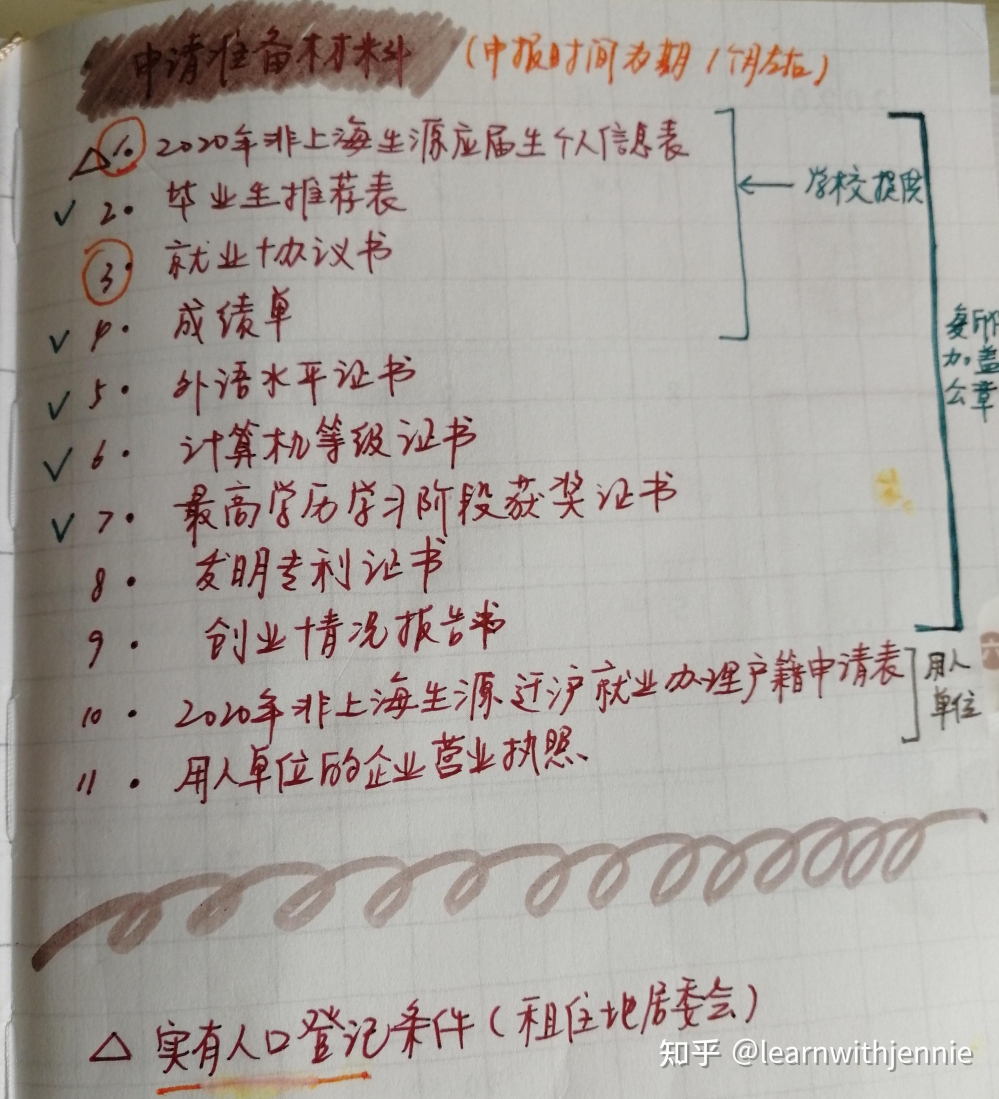 申请准备材料 (申报时间为期1个月左右)
△ 1. 2020年非上海生源应届生个人信息表
✓ 2. 毕业生推荐表
学校提供
3. 就业协议书
✓ 4. 成绩单
复印
加盖
公章
✓ 5. 外语水平证书
✓ 6. 计算机等级证书
✓ 7. 最高学历学习阶段获奖证书
8. 发明专利证书
9. 创业情况报告书
10. 2020年非上海生源迁沪就业办理户籍申请表
用人
单位
11. 用人单位的企业营业执照、
△ 实有人口登记条件(租住地居委会)
知乎 @learnwithjennie